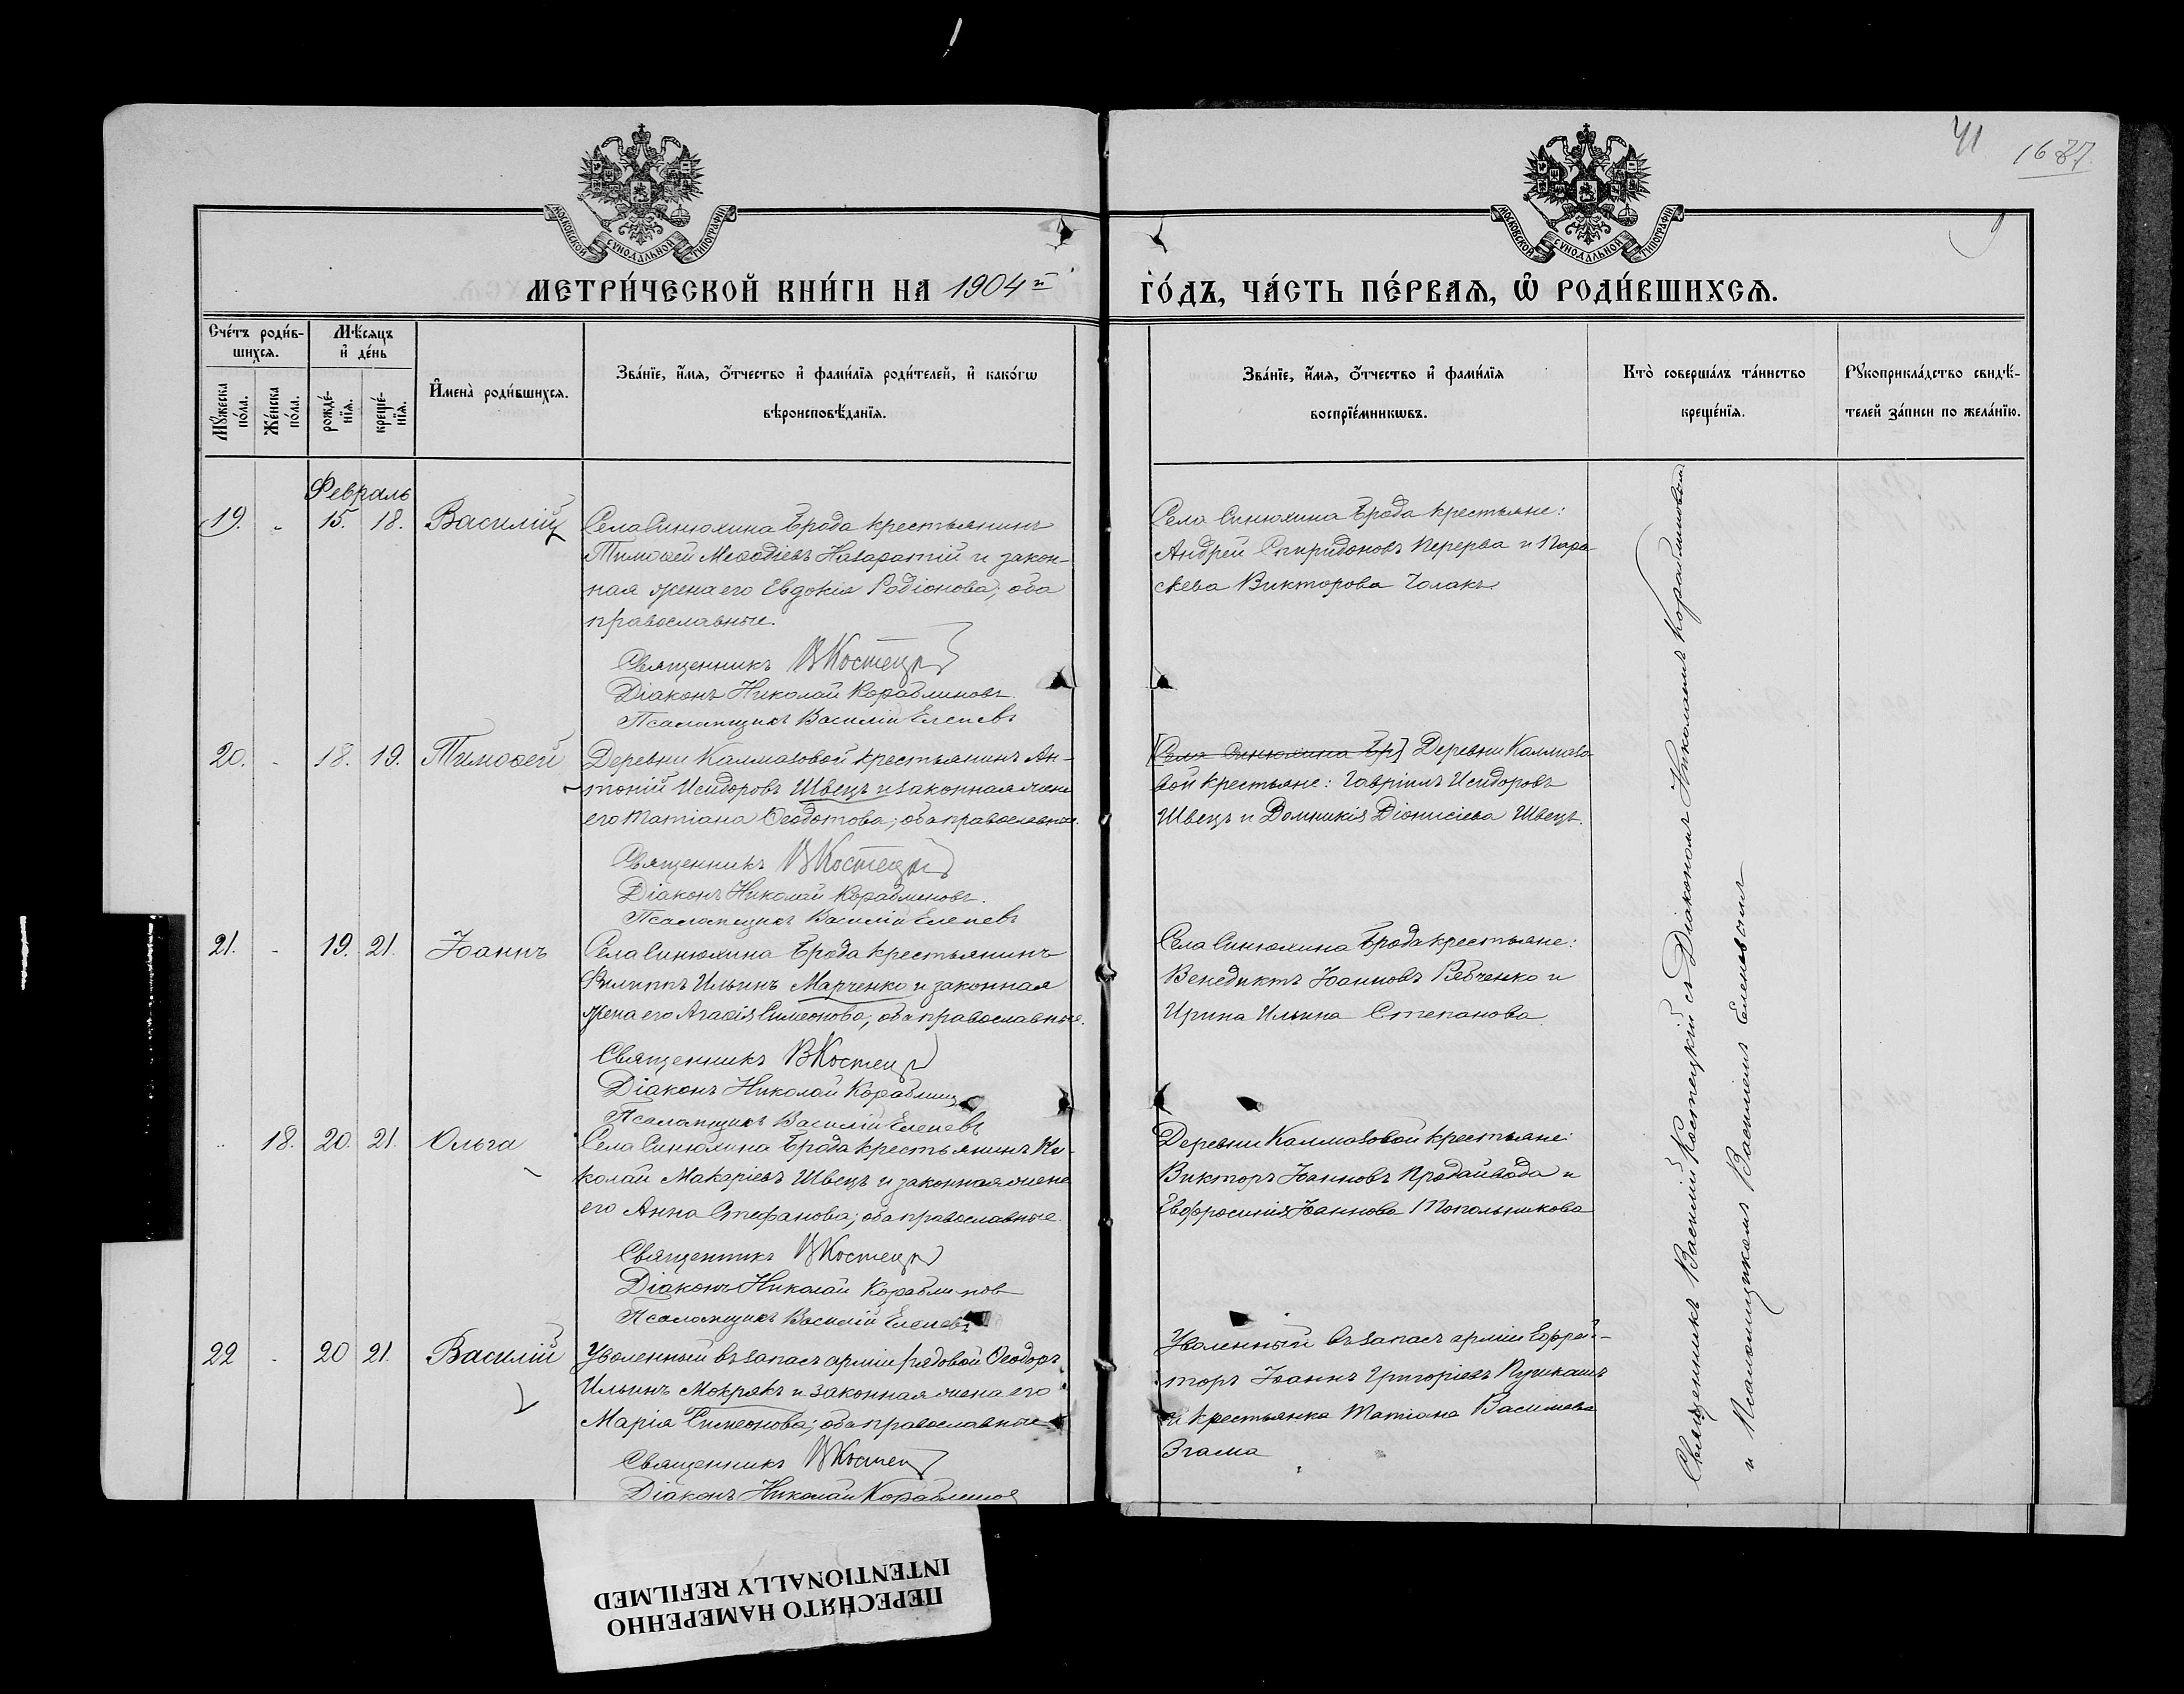 41
1687.
МОСКОВСКОЙ СУНОДАЛЬНОЙ ТИПОГРАФІИ
МОСКОВСКОЙ СУНОДАЛЬНОЙ ТИПОГРАФІИ
МЕТРИ́ЧЕСКОЙ КНИ́ГИ НА 1904й
ГО́ДЪ, ЧА́СТЬ ПЕ́РВАѦ, Ѡ҆ РОДИ́ВШИХСѦ.
Сче́тъ роди́в-
шихсѧ.
Мꙋжеска по́ла.
Же́нска по́ла.
Мѣ́сѧцъ
и҆ де́нь
рожде́-нїѧ.
креще́-нїѧ.
И҆мена̀ роди́вшихсѧ.
Зва́нїе, и҆́мѧ, ѻ҆́тчество и҆ фами́лїѧ роди́телей, и҆ како́гѡ
вѣроисповѣ́данїѧ.
Зва́нїе, и҆́мѧ, ѻ҆́тчество и҆ фами́лїѧ
воспрїе́мникѡвъ.
Кто̀ соверша́лъ та́инство
креще́нїѧ.
Рꙋкоприкла́дство свидѣ́-
телей за́писи по жела́нїю.
Февраль
19. 15. 18. Василій
Села Синюхина Брода крестьянинъ
Тимоѳей Меѳодіевъ Назаратій и закон-
ная жена его Евдокія Родіонова; оба
православные.
Священникъ ВКостецкій
Діаконъ Николай Кораблиновъ
Псаломщикъ Василій Елепевъ
Села Синюхина Брода крестьяне:
Андрей Спиридоновъ Перерва и Пара-
скева Викторова Чолакъ.
20. 18. 19. Тимоѳей
Деревни Калмазовой крестьянинъ Ан-
тоній Исидоровъ Швецъ и законная жена
его Татіана Ѳеодотова; оба православные.
Священникъ ВКостецкій
Діаконъ Николай Кораблиновъ.
Псаломщикъ Василій Елепевъ
[Села Синюхина Бр] Деревни Калмазо-
вой крестьяне: Гавріилъ Исидоровъ
Швецъ и Домникія Діонисіева Швецъ.
21. 19. 21. Іоаннъ
Села Синюхина Брода крестьянинъ
Филиппъ Ильинъ Марченко и законная
жена его Агаѳія Симеонова; оба православные.
Священникъ ВКостецкій
Діаконъ Николай Кораблин
Псаломщикъ Василій Елепевъ
Села Синюхина Брода крестьяне:
Венедиктъ Іоанновъ Рябченко и
Ирина Ильина Степанова.
18. 20. 21. Ольга
Села Синюхина Брода крестьянинъ Ни-
колай Макаріевъ Швецъ и законная жена
его Анна Стефанова; оба православные.
Священникъ ВКостецкій
Діаконъ Николай Кораблинов
Псаломщикъ Василій Елепевъ
Деревни Калмазовой крестьяне:
Викторъ Іоанновъ Продайвода и
Евфросинія Іоаннова Топольникова
22 20 21. Василій
Уволенный въ запасъ арміи рядовой Ѳеодоръ
Ильинъ Мокрякъ и законная жена его
Марія Симеонова; оба православные
Священникъ ВКостец
Діаконъ Николай Кораблинов
Уволенный въ запасъ арміи Ефрей-
торъ Іоаннъ Григоріевъ Пушкашъ
и крестьянка Татіана Василіева
Згама
Священникъ Василій Костецкій съ Діакономъ Николаемъ Кораблиновымъ
и Псаломщикомъ Василіемъ Елепевымъ
ПЕРЕСНЯТО НАМЕРЕННО
INTENTIONALLY REFILMED